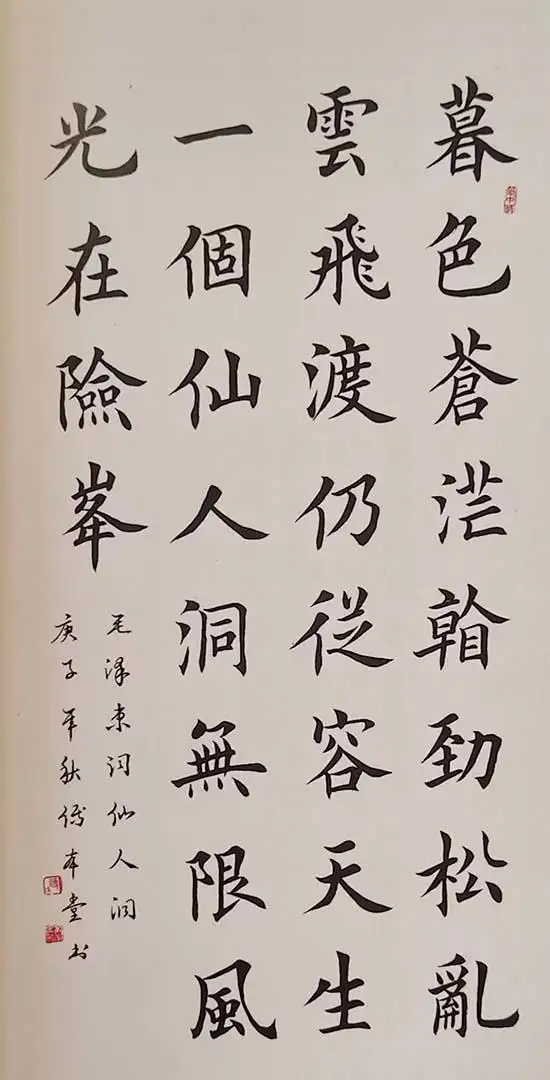 暮色蒼茫勁松亂
雲飛渡仍従容天生
一個仙人洞無限風
光在險峯
毛泽东词仙人洞
庚子年秋本堂书